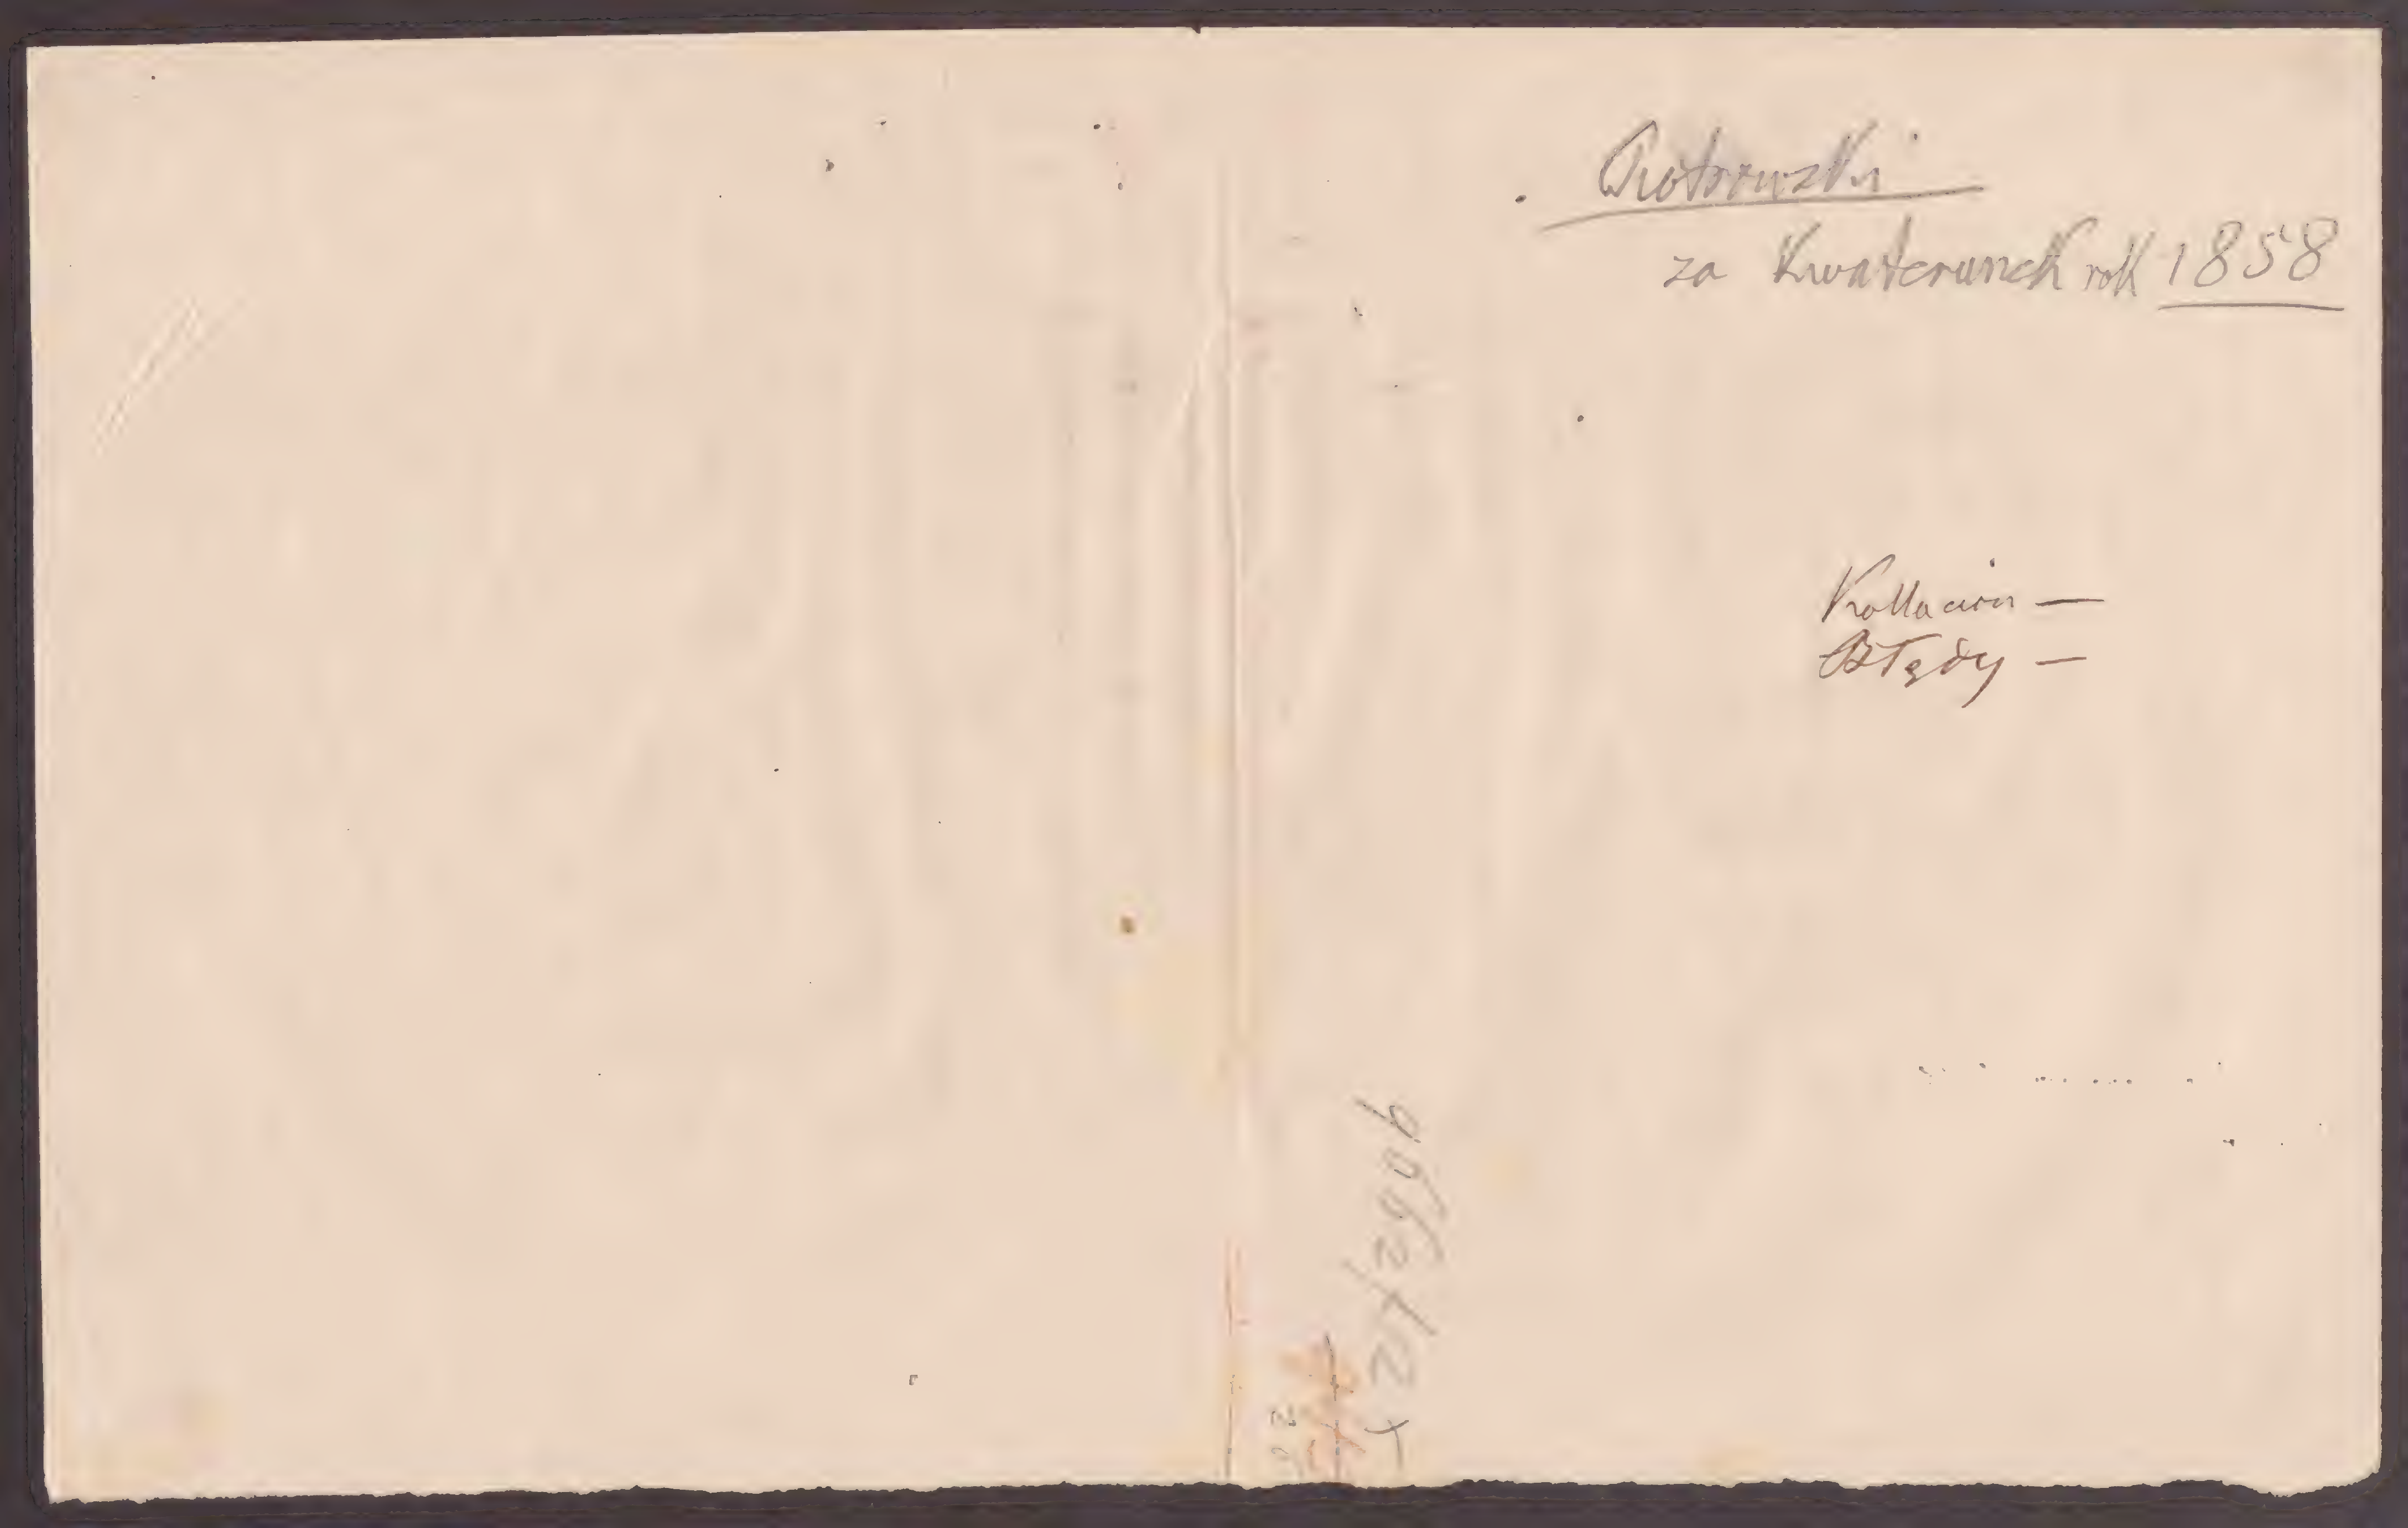 Piotrowski
za Kwaterunek rok 1858
Kollacion —
Błędy —